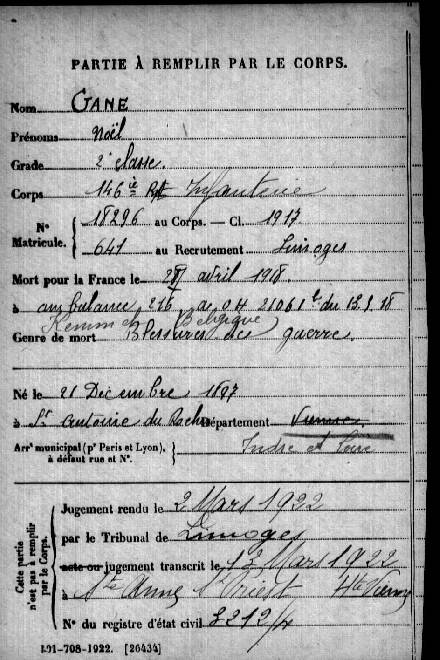 PARTIE À REMPLIR PAR LE CORPS.
Nom GANE
Prénoms Noël
Grade 2e classe.
Corps 146 ie Rgt Infanterie
N° Matricule. 18296 au Corps. — Cl. 1917
641 au Recrutement Limoges
Mort pour la France le avril 1918.
à ambulance 216 21061 du 13.5.18
Kemmel (Belgique)
Genre de mort Blessures de guerre.
Né le 21 Décembre 1897
à St Antoine du Rocher Département Vienne
Arrt municipal (pr Paris et Lyon), à défaut rue et N°. Indre et Loire
Cette partie n'est pas à remplir par le Corps.
Jugement rendu le 2 Mars 1922
par le Tribunal de Limoges
acte ou jugement transcrit le 12 Mars 1922
à Ste Anne St Priest Hte Vienne
N° du registre d'état civil
101-708-1922. [26434]